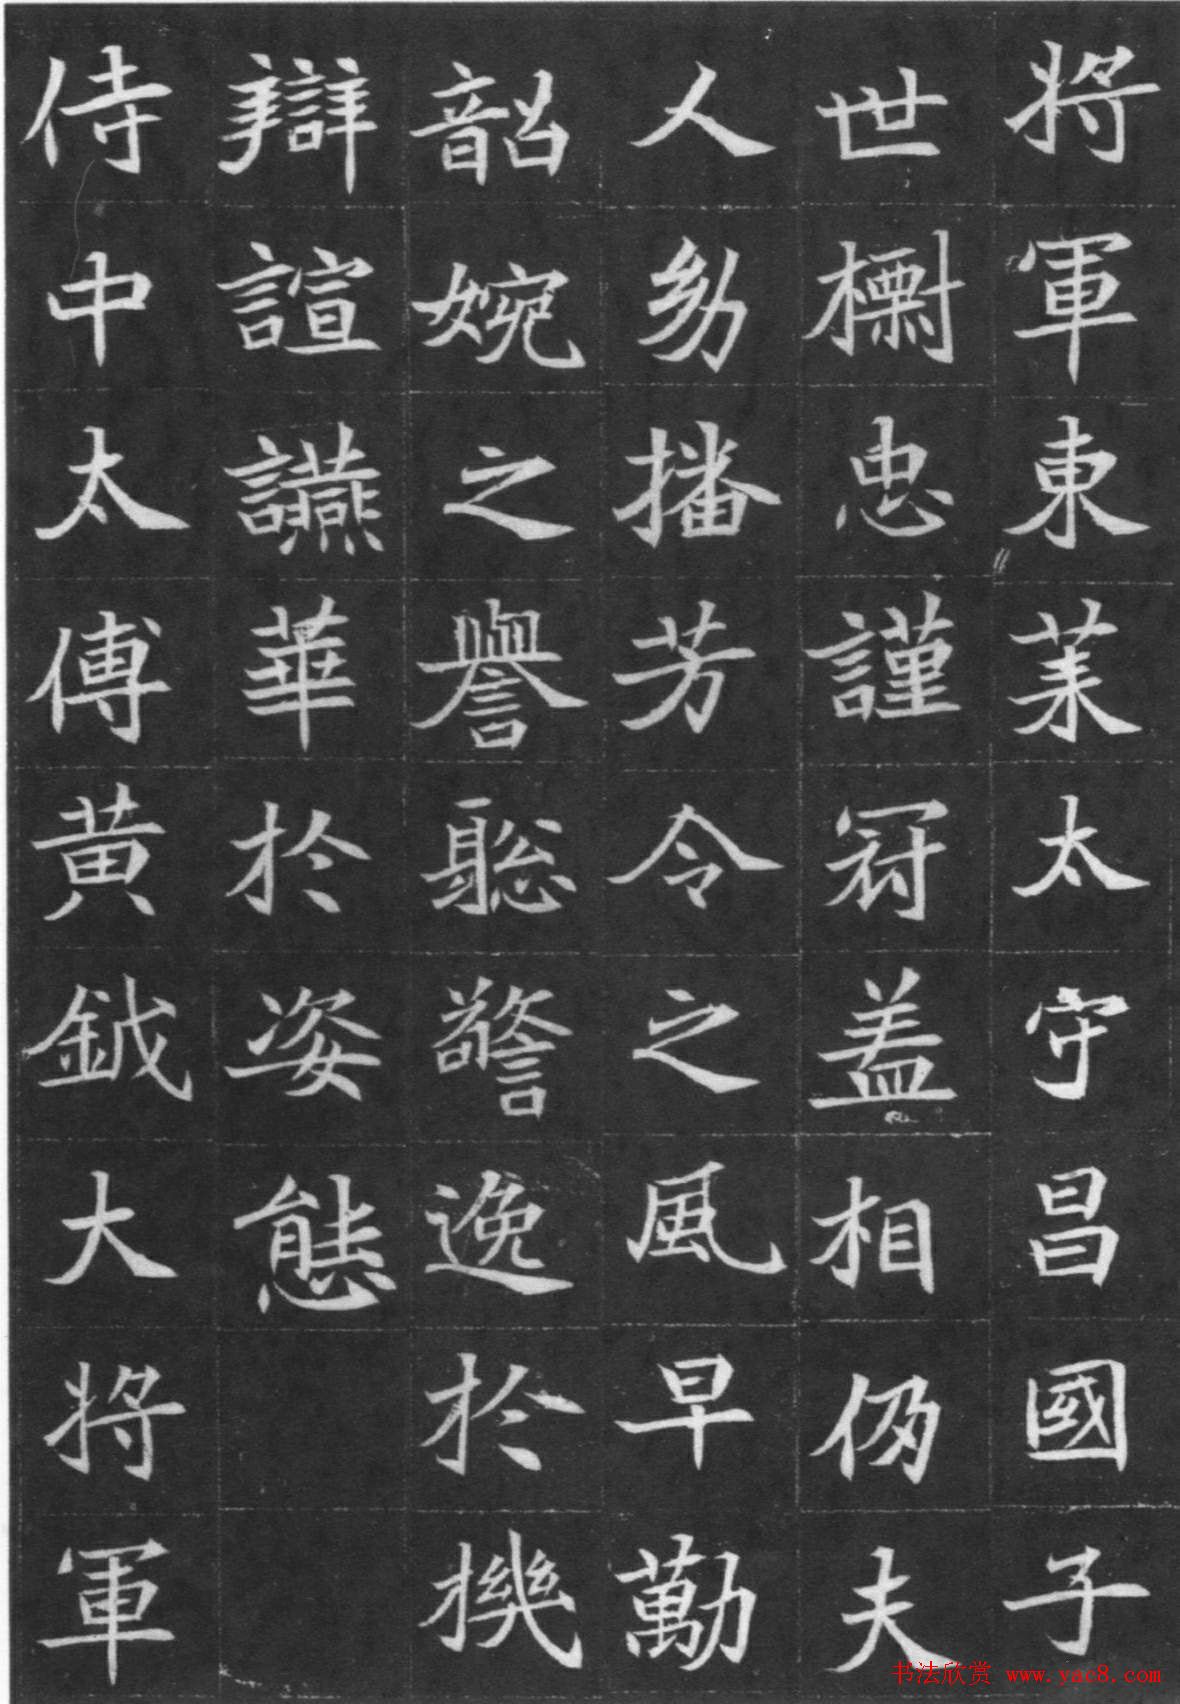 將軍東萊太守昌國子
世樹忠謹冠盖相仍夫
人幼播芳令之風早勱
韶婉之譽聡警逸於機
辯諠讌華於姿態
侍中太傅黃鉞大將軍
书法欣赏 www.yac8.com